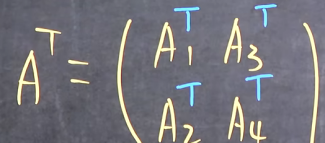 A^T = ( A_1^T A_3^T
A_2^T A_4^T )